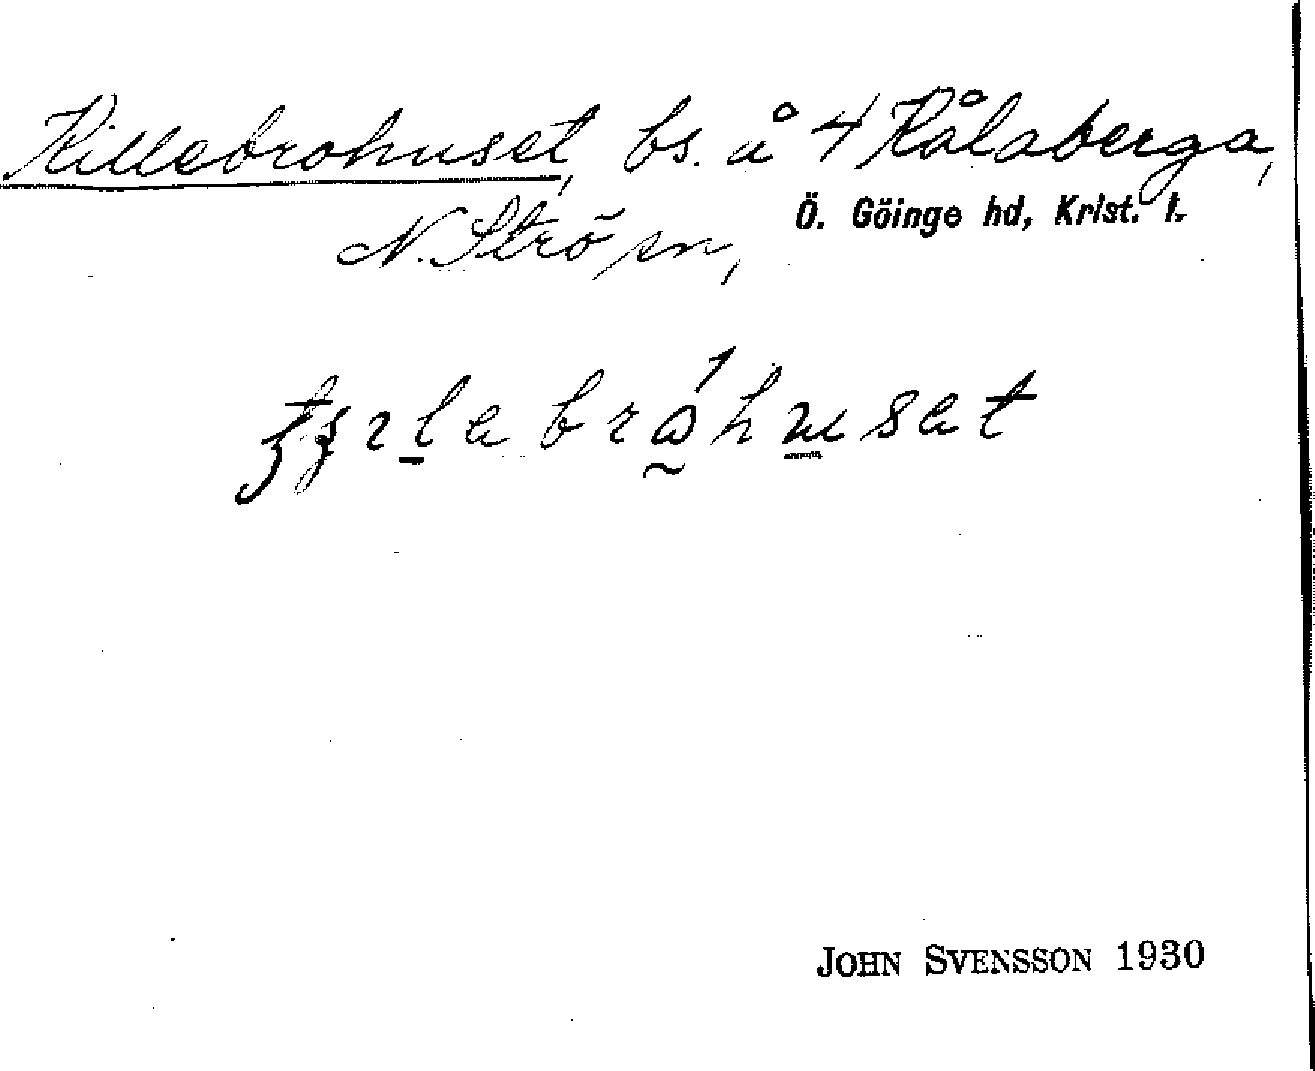 Killebrohuset, bs. å 4 Kålaberga,
N. Strö sn, Ö. Göinge hd, Krist. l.
JOHN SVENSSON 1930